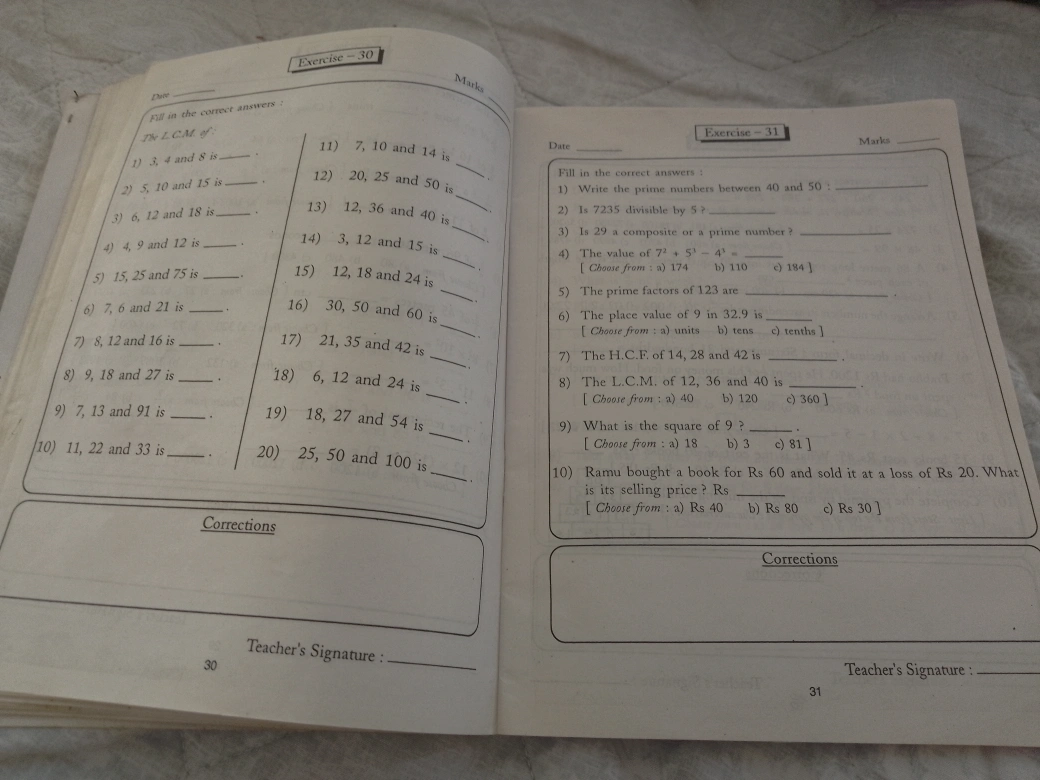 Exercise – 30
Date ______ Marks ____
Fill in the correct answers :
The L.C.M. of :
1) 3, 4 and 8 is ____ .
2) 5, 10 and 15 is ____ .
3) 6, 12 and 18 is ____ .
4) 4, 9 and 12 is ____ .
5) 15, 25 and 75 is ____ .
6) 7, 6 and 21 is ____ .
7) 8, 12 and 16 is ____ .
8) 9, 18 and 27 is ____ .
9) 7, 13 and 91 is ____ .
10) 11, 22 and 33 is ____ .
11) 7, 10 and 14 is ____ .
12) 20, 25 and 50 is ____ .
13) 12, 36 and 40 is ____ .
14) 3, 12 and 15 is ____ .
15) 12, 18 and 24 is ____ .
16) 30, 50 and 60 is ____ .
17) 21, 35 and 42 is ____ .
18) 6, 12 and 24 is ____ .
19) 18, 27 and 54 is ____ .
20) 25, 50 and 100 is ____ .
Corrections
Teacher's Signature : ________
30
Exercise – 31
Date ______ Marks ____
Fill in the correct answers :
1) Write the prime numbers between 40 and 50 : ________
2) Is 7235 divisible by 5 ? ______
3) Is 29 a composite or a prime number ? ________
4) The value of 7² + 5³ – 4³ = ____
[ Choose from : a) 174 b) 110 c) 184 ]
5) The prime factors of 123 are ________ .
6) The place value of 9 in 32.9 is ____
[ Choose from : a) units b) tens c) tenths ]
7) The H.C.F. of 14, 28 and 42 is ______ .
8) The L.C.M. of 12, 36 and 40 is ______ .
[ Choose from : a) 40 b) 120 c) 360 ]
9) What is the square of 9 ? ____ .
[ Choose from : a) 18 b) 3 c) 81 ]
10) Ramu bought a book for Rs 60 and sold it at a loss of Rs 20. What
is its selling price ? Rs ____
[ Choose from : a) Rs 40 b) Rs 80 c) Rs 30 ]
Corrections
Teacher's Signature : ______
31